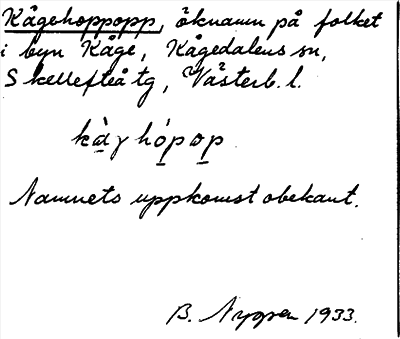 Kågehoppopp, öknamn på folket
i byn Kåge, Kågedalens sn,
Skellefteå tg, Västerb. l.
kàγhópop
Namnets uppkomst obekant.
B. 1933.